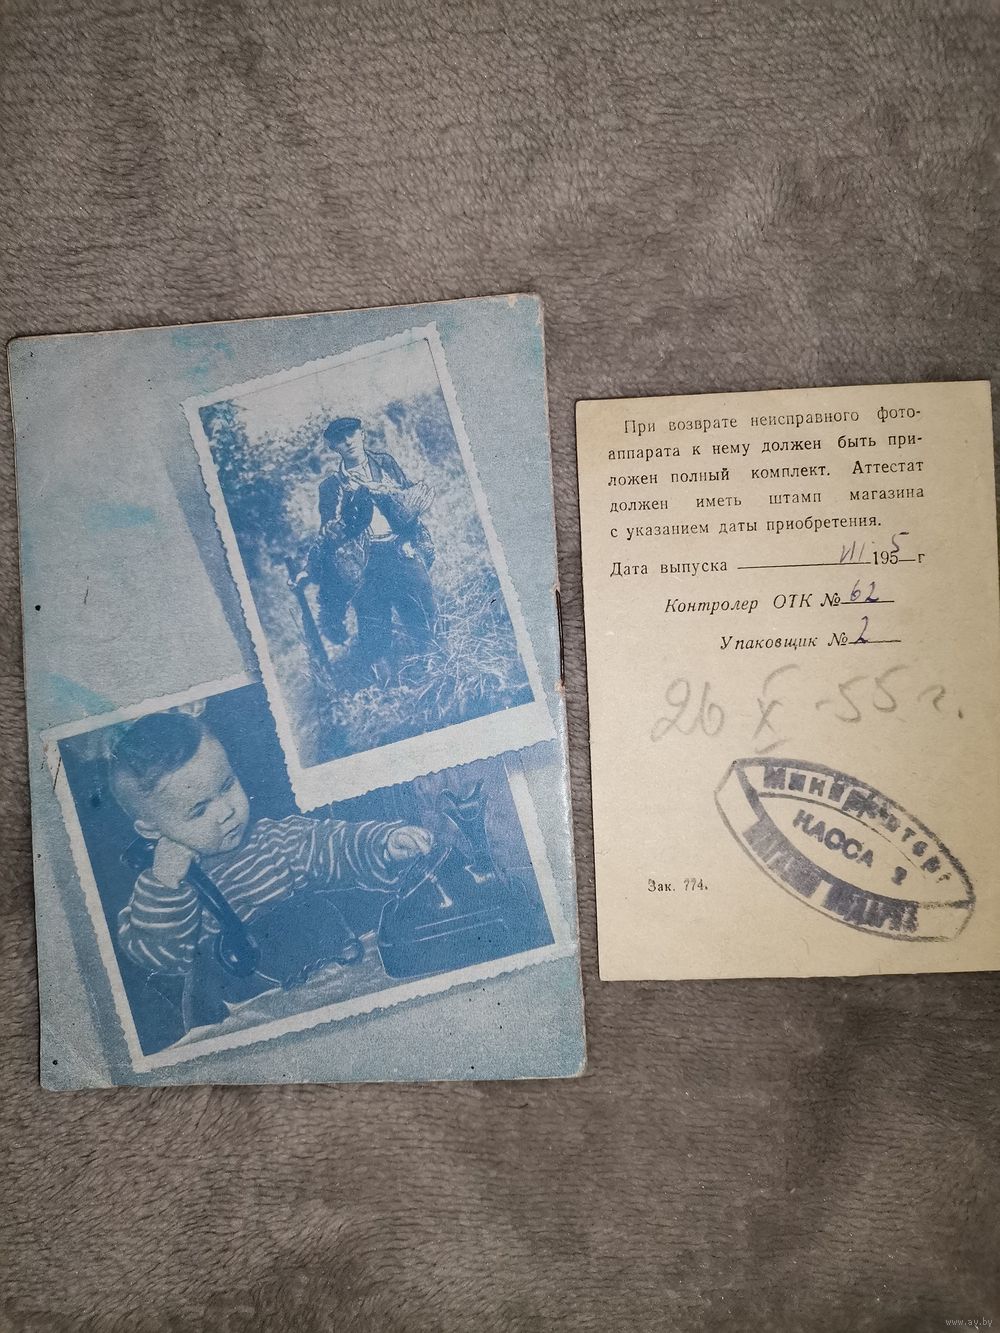 При возврате неисправного фото-
аппарата к нему должен быть при-
ложен полный комплект. Аттестат
должен иметь штамп магазина
с указанием даты приобретения.
Дата выпуска VII 1955 г
Контролер ОТК № 62
Упаковщик № 2
26 X -55 г.
КАССА 2
Зак. 774.
www.ay.by